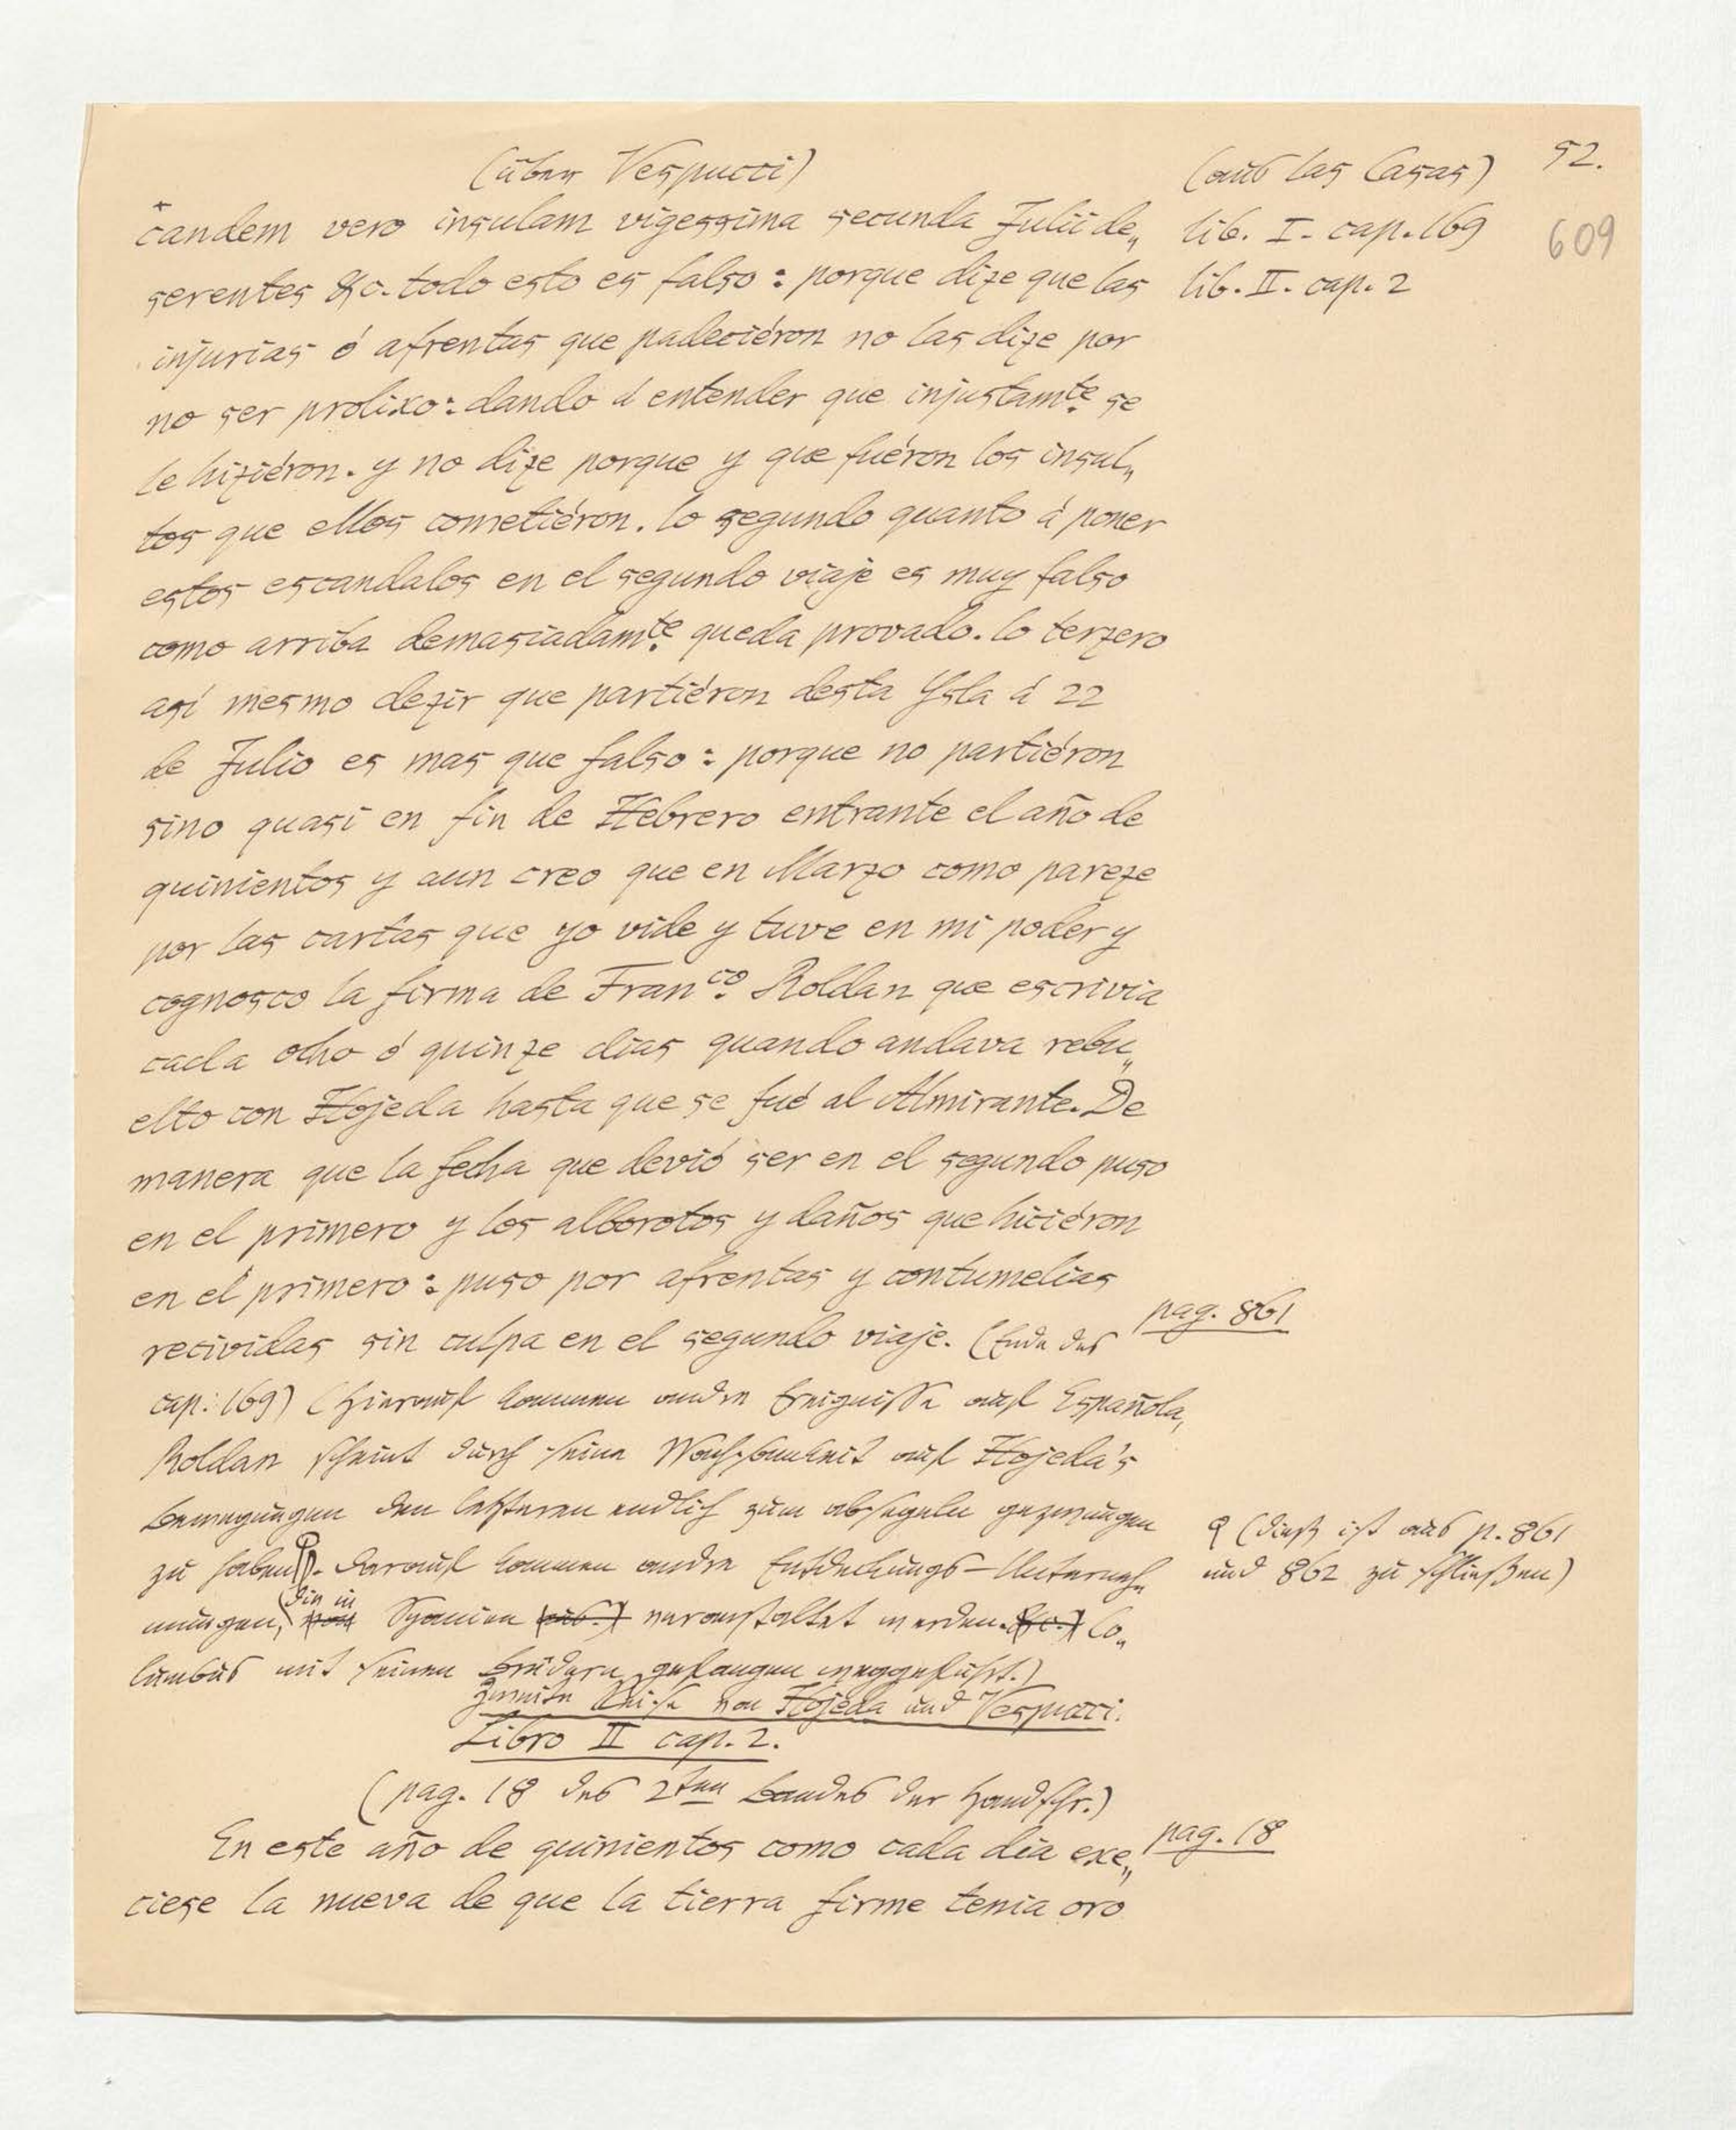 (über Vespucci)
(aus las Casas)
52.
609
candem vero insulam vigessima secunda Julii de„
lib. I. cap. 169
serentes &c. todo esto es falso: porque dize que las
lib. II. cap. 2
injurias ó afrentas que padeciéron no las dize por
no ser prolixo: dando á entender que injustamte. se
le hiziéron. y no dize porque y que fuéron los insul„
tos que ellos cometiéron. lo segundo quanto á poner
estos escandalos en el segundo viaje es muy falso
como arriba demasiadamte. queda provado. lo terzero
así mesmo dezir que partiéron desta Ysla á 22
de Julio es mas que falso: porque no partiéron
sino quasi en fin de Hebrero entrante el año de
quinientos y aun creo que en Marzo como pareze
por las cartas que yo vide y tuve en mi poder y
cognosco la firma de Franco. Roldan que escrivia
cada ocho ó quinze dias quando andava rebu„
elto con Hojeda hasta que se fué al Almirante. De
manera que la fecha que devió ser en el segundo puso
en el primero y los alborotos y daños que hiciéron
en el primero: puso por afrentas y contumelias
recividas sin culpa en el segundo viaje. (Ende des
pag. 861
cap: 169) (Hierauf kommen andre Ereignisse auf Española,
Roldan scheint durch seine Wachsamkeit auf Hojeda's
Bewegungen den letzteren endlich zum absegeln gezwungen
zu haben. Darauf kommen andre Entdeckungs-Unterneh„
(dieß ist aus p. 861
und 862 zu schließen)
mungen, die in Spanien veranstaltet werden. Co„
lumbus mit seinen Brüdern gefangen weggeführt.)
Zweite Reise von Hojeda und Vespucci.
Libro II cap. 2.
(pag. 18 des 2ten Bandes der Handschr.)
En este año de quinientos como cada dia exe„
pag. 18
ciese la nueva de que la tierra firme tenia oro